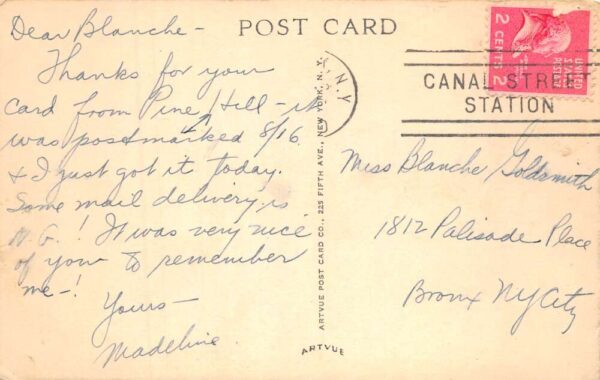 Dear Blanche -
POST CARD
2 CENTS 2
UNITED STATES POSTAGE
N.Y.
CANAL STREET
STATION
Thanks for your
card from Pine Hill - it
was postmarked 8/16
& I just got it today.
Some mail delivery is
N.G.! It was very nice
of you to remember
me -!
Yours -
Madeline
ARTVUE POST CARD CO., 225 FIFTH AVE., NEW YORK, N.Y.
ARTVUE
Miss Blanche Goldsmith
1812 Palisade Place
Bronx NY City